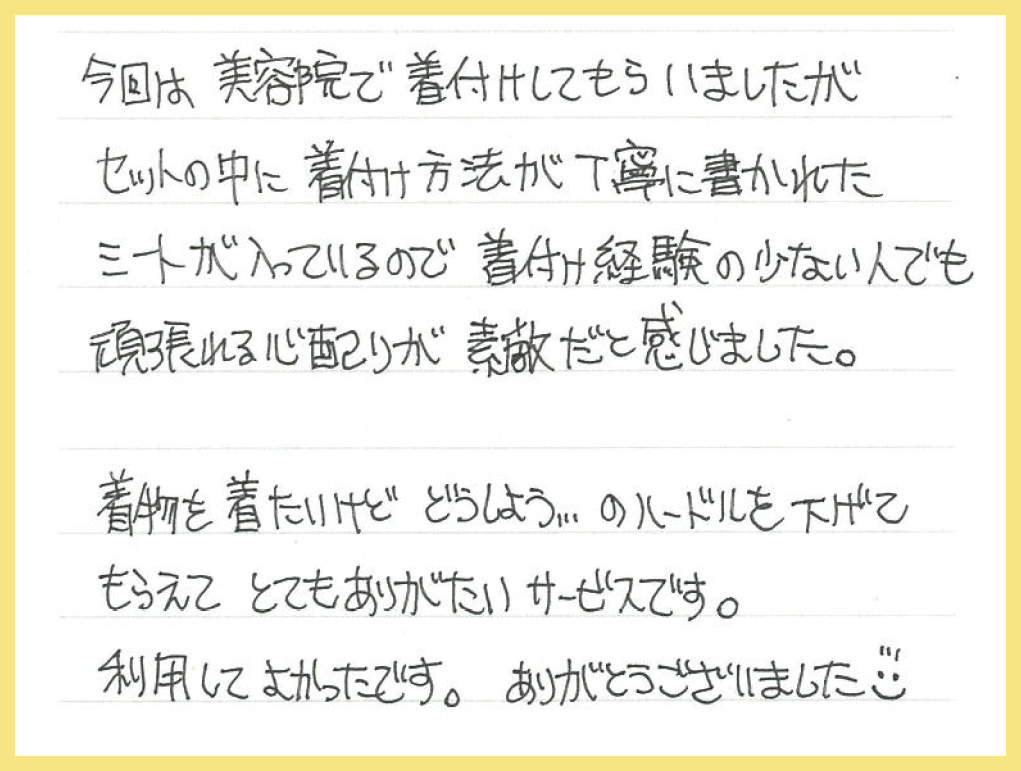 今回は 美容院で 着付けしてもらいましたが
セットの中に 着付け方法が丁寧に書かれた
シートが入っているので 着付け経験の少ない人でも
頑張れる心配りが 素敵だと感じました。
着物を着たいけど どうしよう... のハードルを下げて
もらえて とてもありがたいサービスです。
利用してよかったです。 ありがとうございました